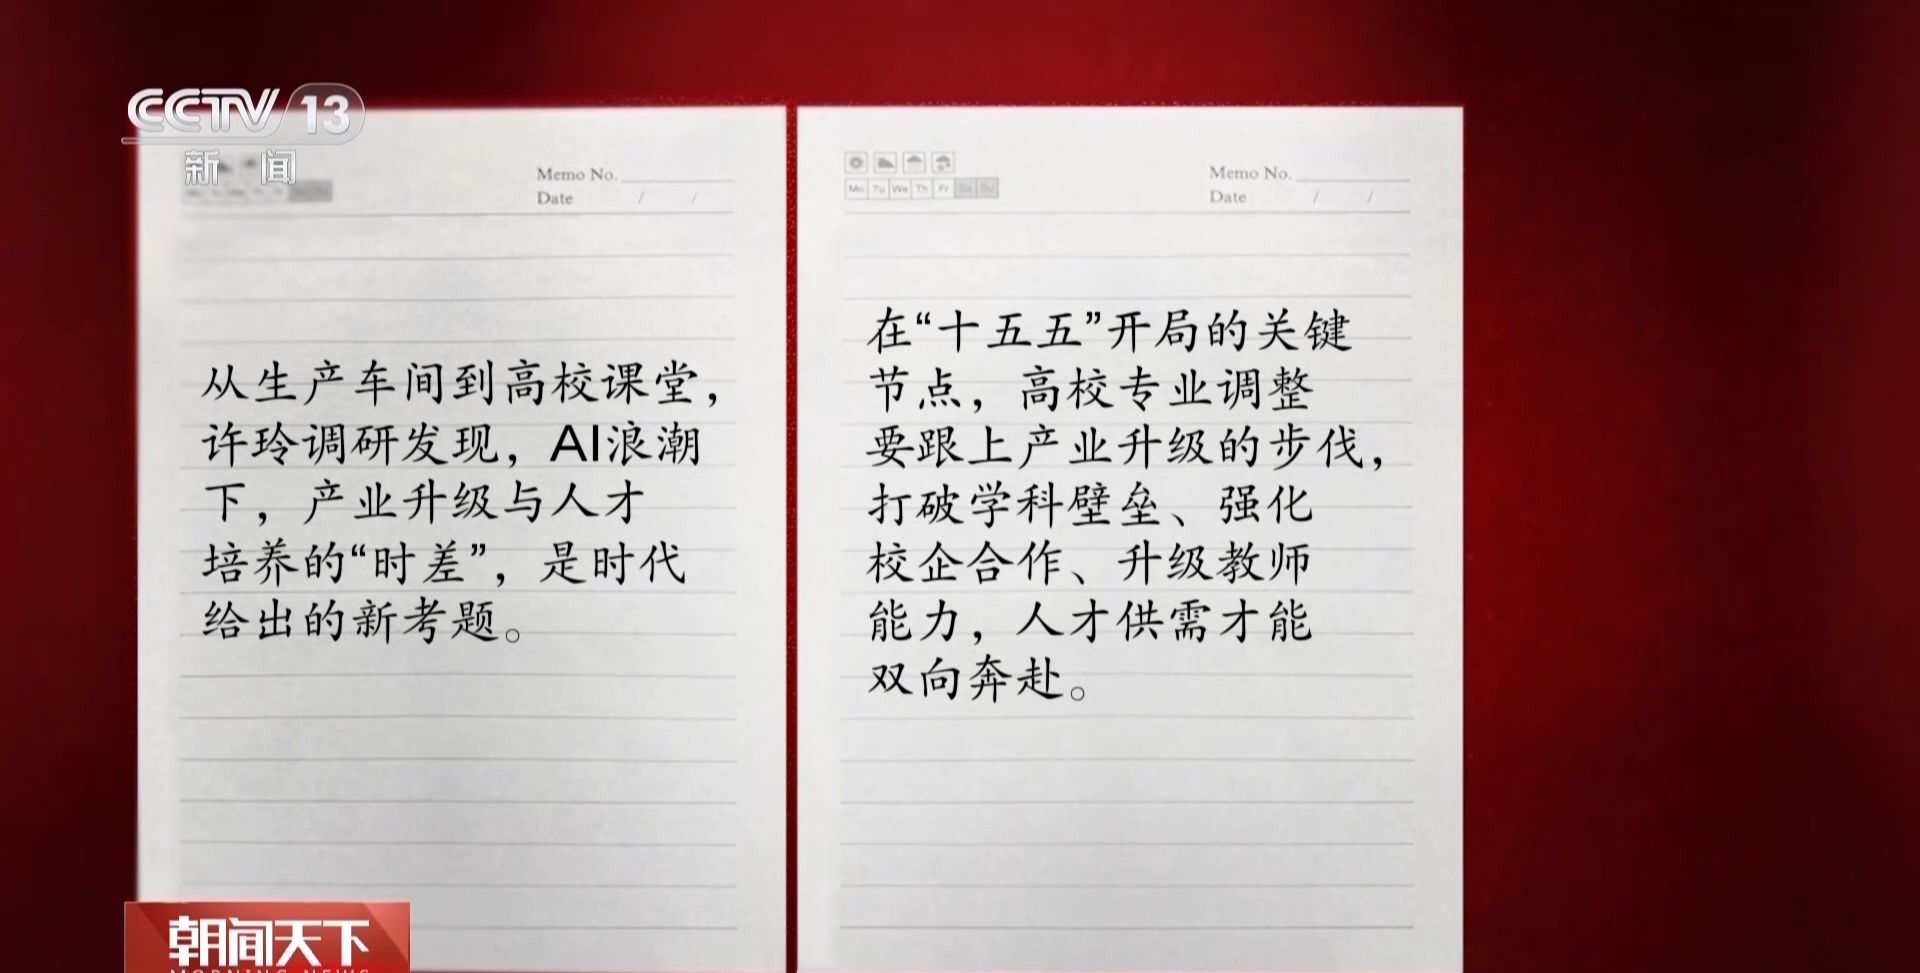 CCTV 13
新闻
Memo No.
Date / /
从生产车间到高校课堂，
许玲调研发现，AI浪潮
下，产业升级与人才
培养的“时差”，是时代
给出的新考题。
Memo No.
Date / /
Mo Tu We Th Fr Sa Su
在“十五五”开局的关键
节点，高校专业调整
要跟上产业升级的步伐，
打破学科壁垒、强化
校企合作、升级教师
能力，人才供需才能
双向奔赴。
朝闻天下
MORNING NEWS